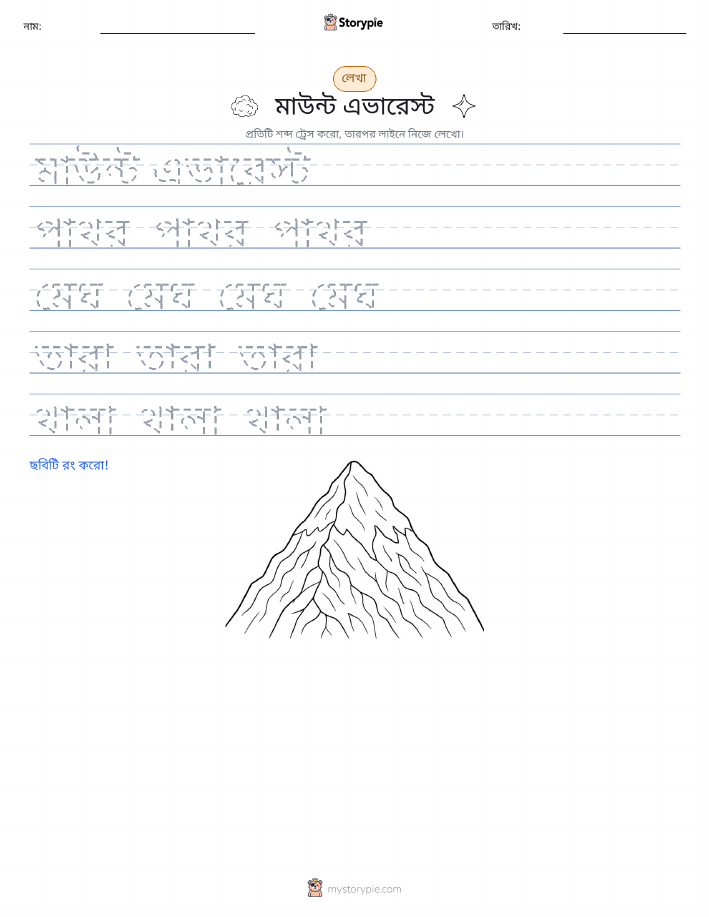 নাম:
Storypie
তারিখ:
লেখা
মাউন্ট এভারেস্ট
প্রতিটি শব্দ ট্রেস করো, তারপর লাইনে নিজে লেখো।
মাউন্ট এভারেস্ট
পাথর পাথর পাথর
মেঘ মেঘ মেঘ মেঘ
তারা তারা তারা
থালা থালা থালা
ছবিটি রং করো!
mystorypie.com